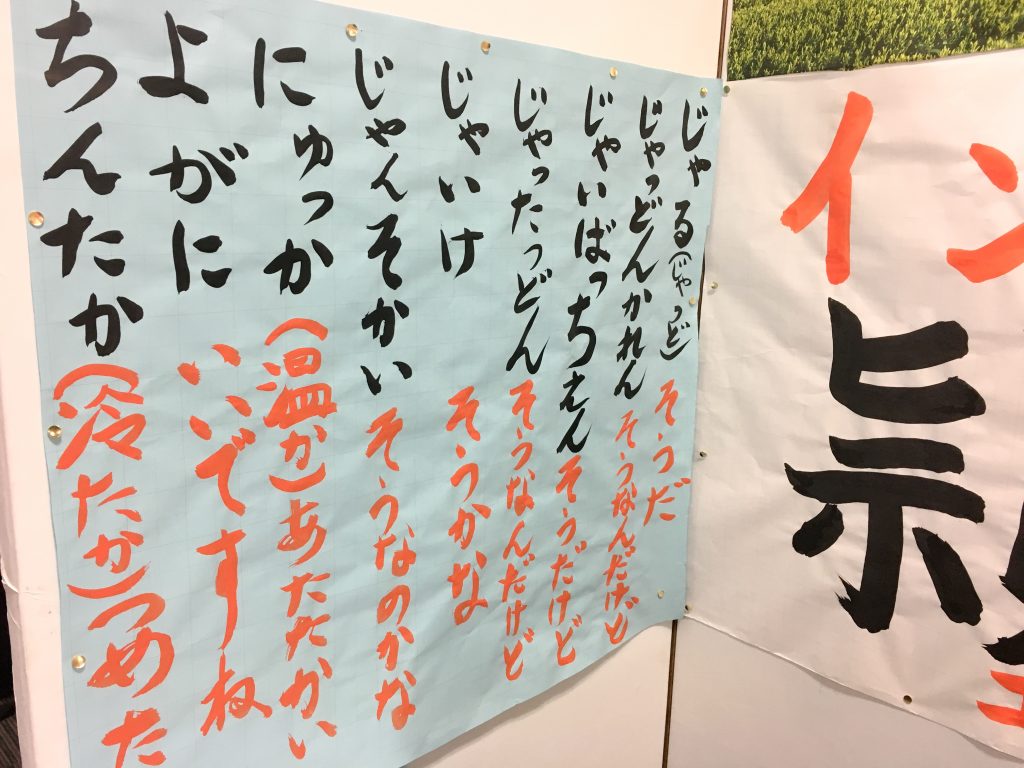 じゃる(じゃっど) そうだ
じゃっどんかれん そうなんだけど
じゃいばっちぇん そうだけど
じゃったっどん そうなんだけど
じゃいけ そうかな
じゃんそかい そうなのかな
にゅっか(温か)あたたかい
よがに いいですね
ちんたか(冷たか)つめた
イン
宗